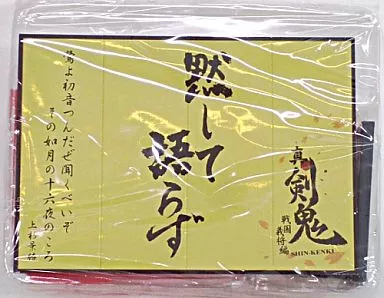 鶯よ初音つんだぜ聞くべいぞ
その如月の十六夜のころ
黙して
語らず
真
剣鬼
戦国
義将編
SHIN-KENKI